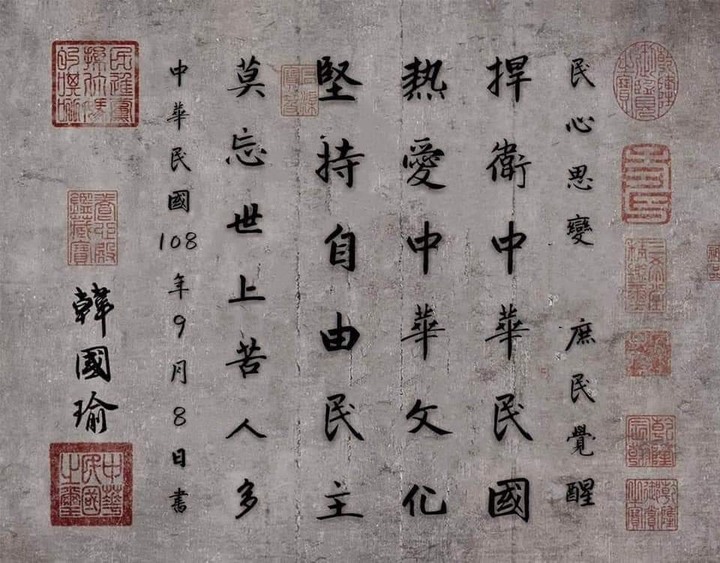 民心思變 庶民覺醒
捍衛中華民國
熱愛中華文化
堅持自由民主
莫忘世上苦人多
中華民國108年9月8日書
韓國瑜
中華民國之璽